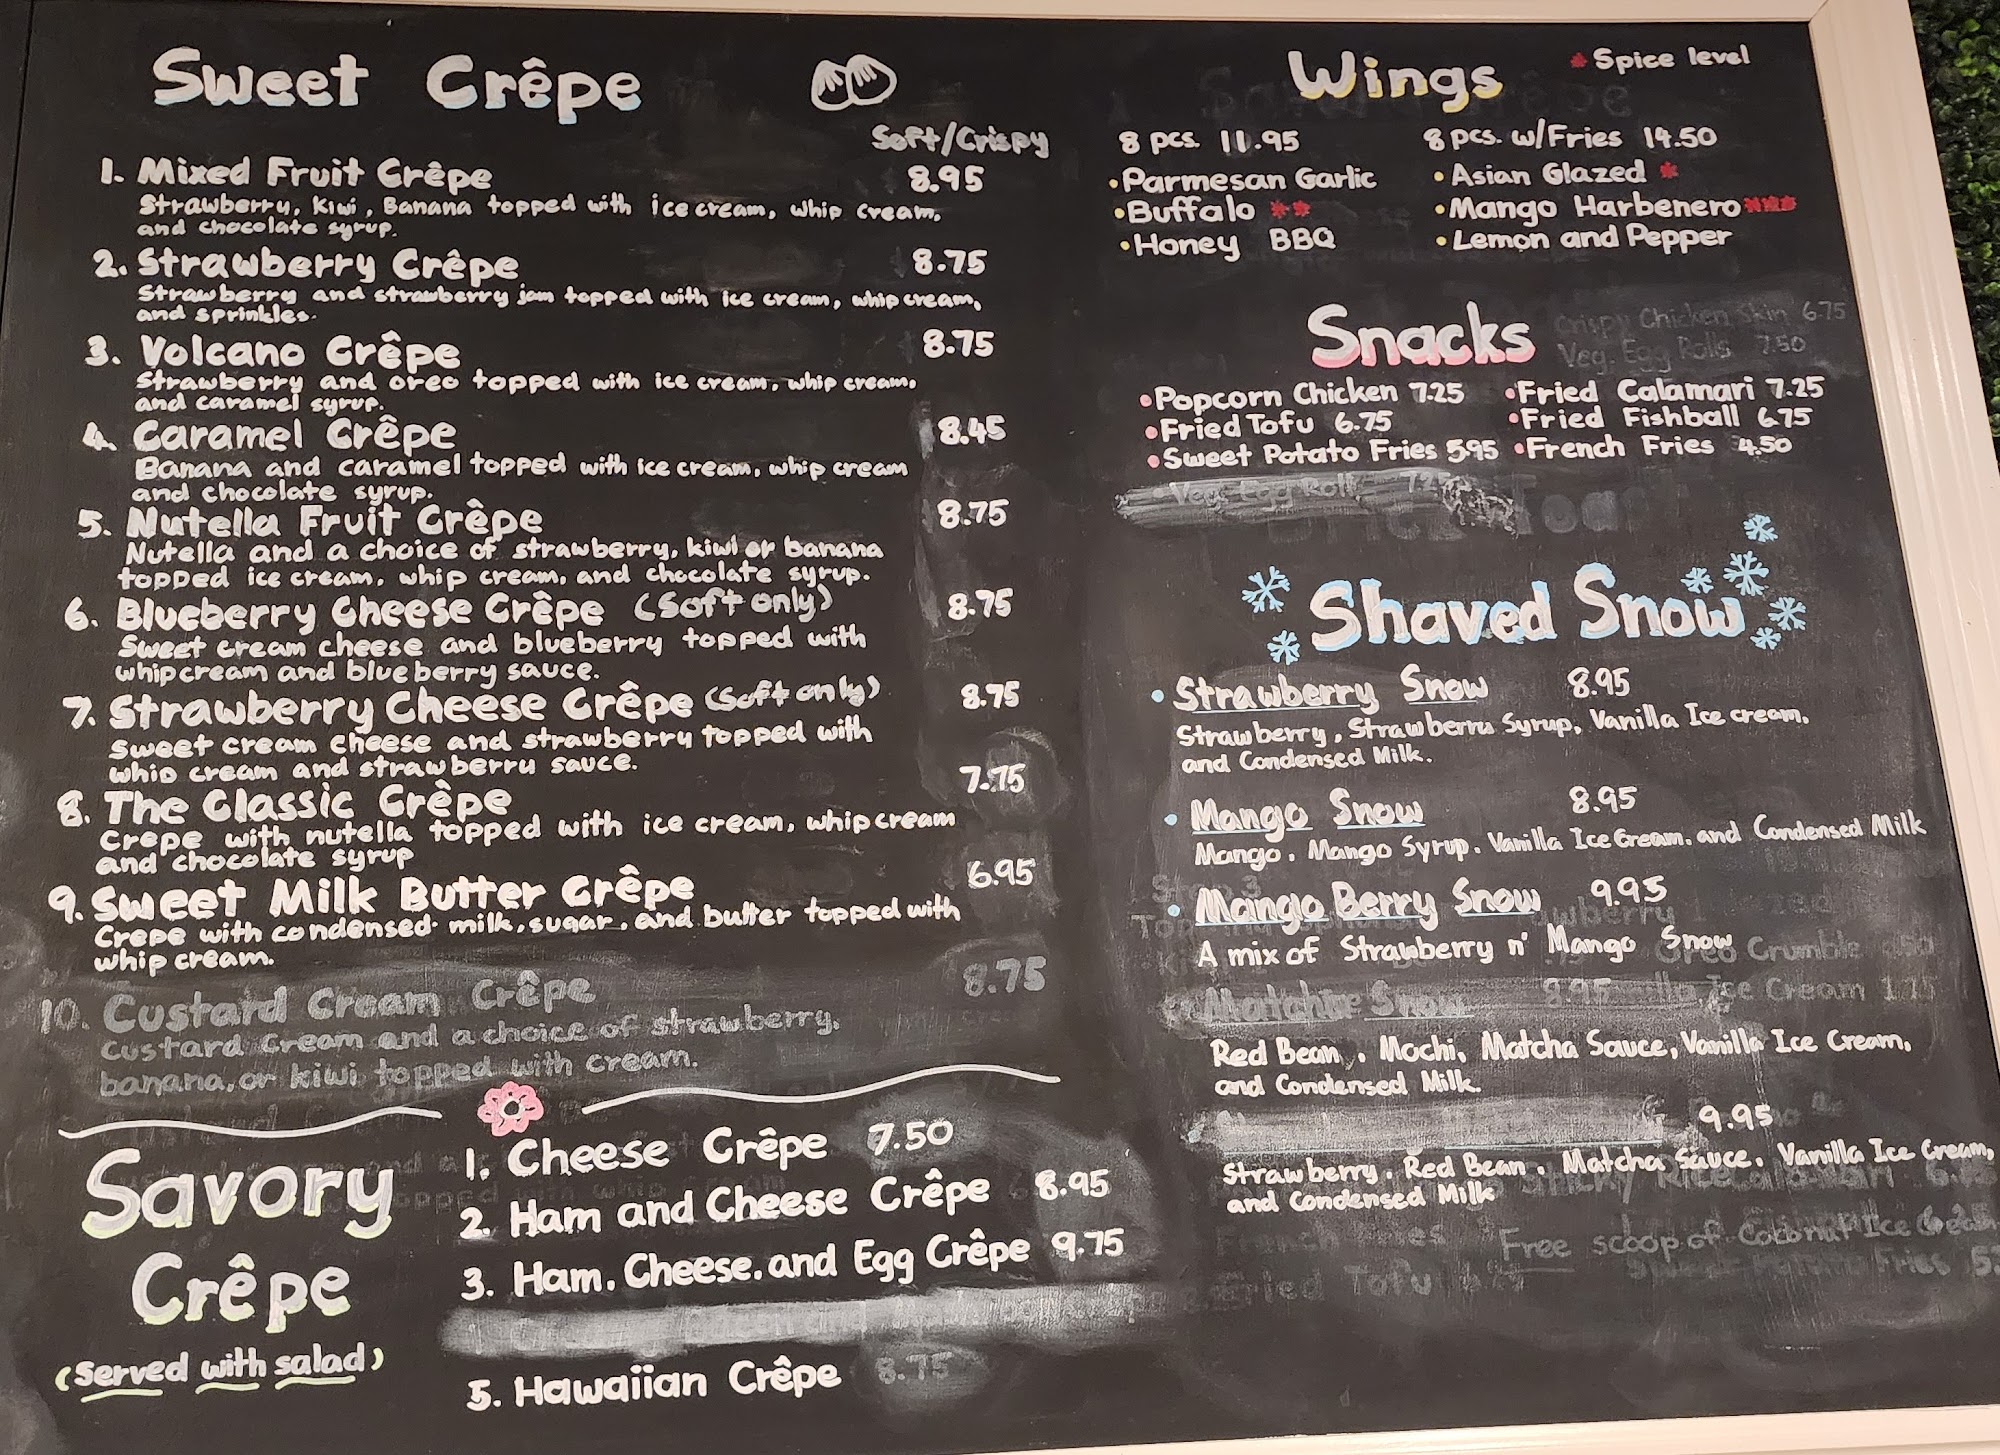 Sweet Crêpe
Soft/Crispy
1. Mixed Fruit Crêpe 8.95
Strawberry, Kiwi, Banana topped with ice cream, whip cream,
and chocolate syrup.
2. Strawberry Crêpe 8.75
Strawberry and strawberry jam topped with ice cream, whip cream,
and sprinkles.
3. Volcano Crêpe 8.75
Strawberry and oreo topped with ice cream, whip cream,
and caramel syrup.
4. Caramel Crêpe 8.45
Banana and caramel topped with ice cream, whip cream
and chocolate syrup.
5. Nutella Fruit Crêpe 8.75
Nutella and a choice of strawberry, kiwi or banana
topped ice cream, whip cream, and chocolate syrup.
6. Blueberry Cheese Crêpe (Soft only) 8.75
Sweet cream cheese and blueberry topped with
whip cream and blueberry sauce.
7. Strawberry Cheese Crêpe (Soft only) 8.75
Sweet cream cheese and strawberry topped with
whip cream and strawberry sauce.
8. The Classic Crêpe 7.75
Crepe with nutella topped with ice cream, whip cream
and chocolate syrup
9. Sweet Milk Butter Crêpe 6.95
Crepe with condensed milk, sugar, and butter topped with
whip cream.
10. Custard Cream Crêpe 8.75
Custard cream and a choice of strawberry,
banana, or kiwi topped with cream.
Savory
Crêpe
(Served with salad)
1. Cheese Crêpe 7.50
2. Ham and Cheese Crêpe 8.95
3. Ham, Cheese, and Egg Crêpe 9.75
5. Hawaiian Crêpe 8.75
Wings
* Spice level
8 pcs. 11.95 8 pcs. w/Fries 14.50
• Parmesan Garlic • Asian Glazed *
• Buffalo ** • Mango Harbenero ***
• Honey BBQ • Lemon and Pepper
Snacks
Crispy Chicken Skin 6.75
Veg. Egg Rolls 7.50
• Popcorn Chicken 7.25 • Fried Calamari 7.25
• Fried Tofu 6.75 • Fried Fishball 6.75
• Sweet Potato Fries 5.95 • French Fries 4.50
Shaved Snow
• Strawberry Snow 8.95
Strawberry, Strawberry Syrup, Vanilla Ice cream,
and Condensed Milk.
• Mango Snow 8.95
Mango, Mango Syrup, Vanilla Ice Cream, and Condensed Milk
• Mango Berry Snow 9.95
A mix of Strawberry n' Mango Snow
Snow 8.95
Red Bean, Mochi, Matcha Sauce, Vanilla Ice Cream,
and Condensed Milk.
9.95
Strawberry, Red Bean, Matcha Sauce, Vanilla Ice Cream,
and Condensed Milk
Free scoop of Coconut Ice Cream